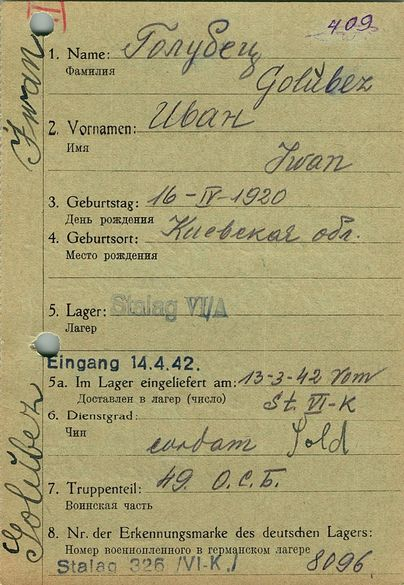 409
1. Name: Голубец
Фамилия
Golŭbez
2. Vornamen: Иван
Имя
Iwan
3. Geburtstag: 16-IV-1920
День рождения
4. Geburtsort: Киевская обл.
Место рождения
5. Lager: Stalag VI/A
Лагер
Eingang 14.4.42.
5a. Im Lager eingeliefert am: 13-3-42 vom
Доставлен в лагер (число) St. VI-K
6. Dienstgrad:
Чин солдат Sold
7. Truppenteil: 49. О.С.Б.
Воинская часть
8. Nr. der Erkennungsmarke des deutschen Lagers:
Номер военнопленного в германском лагере
Stalag 326 /VI-K./ 8096
Iwan
Golŭbez